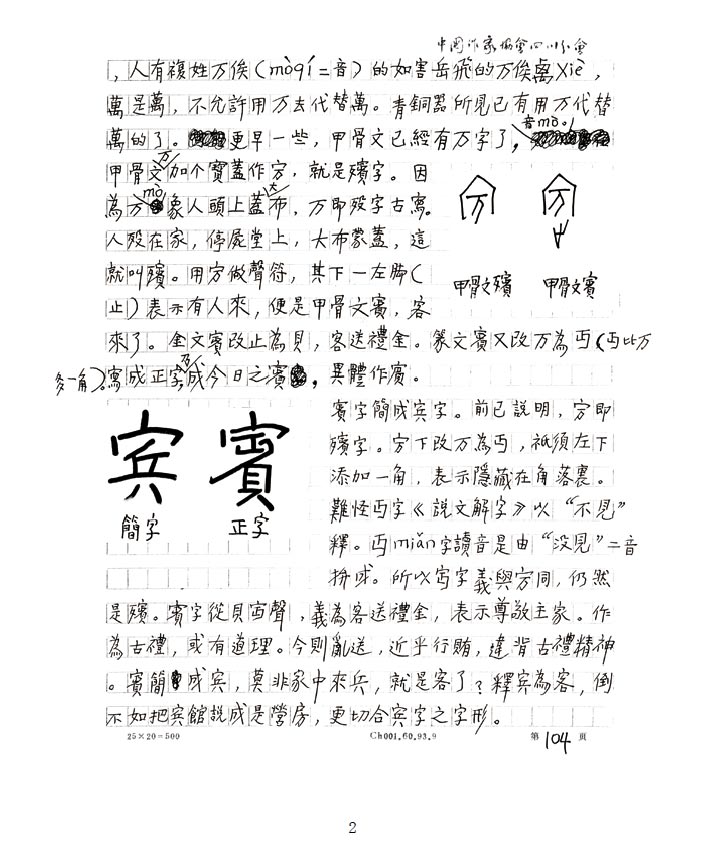 中国作家協會四川分會
，人有複姓万俟（mòqí二音）的如害岳飛的万俟卨Xiè，
萬是萬，不允許用万去代替萬。青銅器所見已有用万代替
萬的了。更早一些，甲骨文已經有万字了，音mò。
甲骨文万加个寶蓋作㝏，就是殯字。因
為万mò象人頭上蓋大布，万即歿字古寫。
人歿在家，停屍堂上，大布蒙蓋，這
就叫殯。用㝏做聲符，其下一左脚（
止）表示有人來，便是甲骨文賓，客
來了。金文賓改止為貝，客送禮金。篆文賓又改万為丏（丏比万
多一角）。寫成正字乃成今日之濱，異體作賔。
甲骨文殯
甲骨文賓
宾 賓
簡字 正字
賓字簡成宾字。前已説明，㝏即
殯字。㝏下改万為丏，祇須左下
添加一角，表示隱藏在角落裏。
難怪丏字《説文解字》以“不見”
釋。丏miǎn字讀音是由“没見”二音
拚成。所以宀字義與㝏同，仍然
是殯。賓字從貝宀聲，義為客送禮金，表示尊敬主家。作
為古禮，或有道理。今則亂送，近乎行賄，違背古禮精神
。賓簡成宾，莫非家中來兵，就是客了？釋宾為客，倒
不如把宾館説成是營房，更切合宾字之字形。
25×20=500
Ch001.60.93.9
第104頁
2